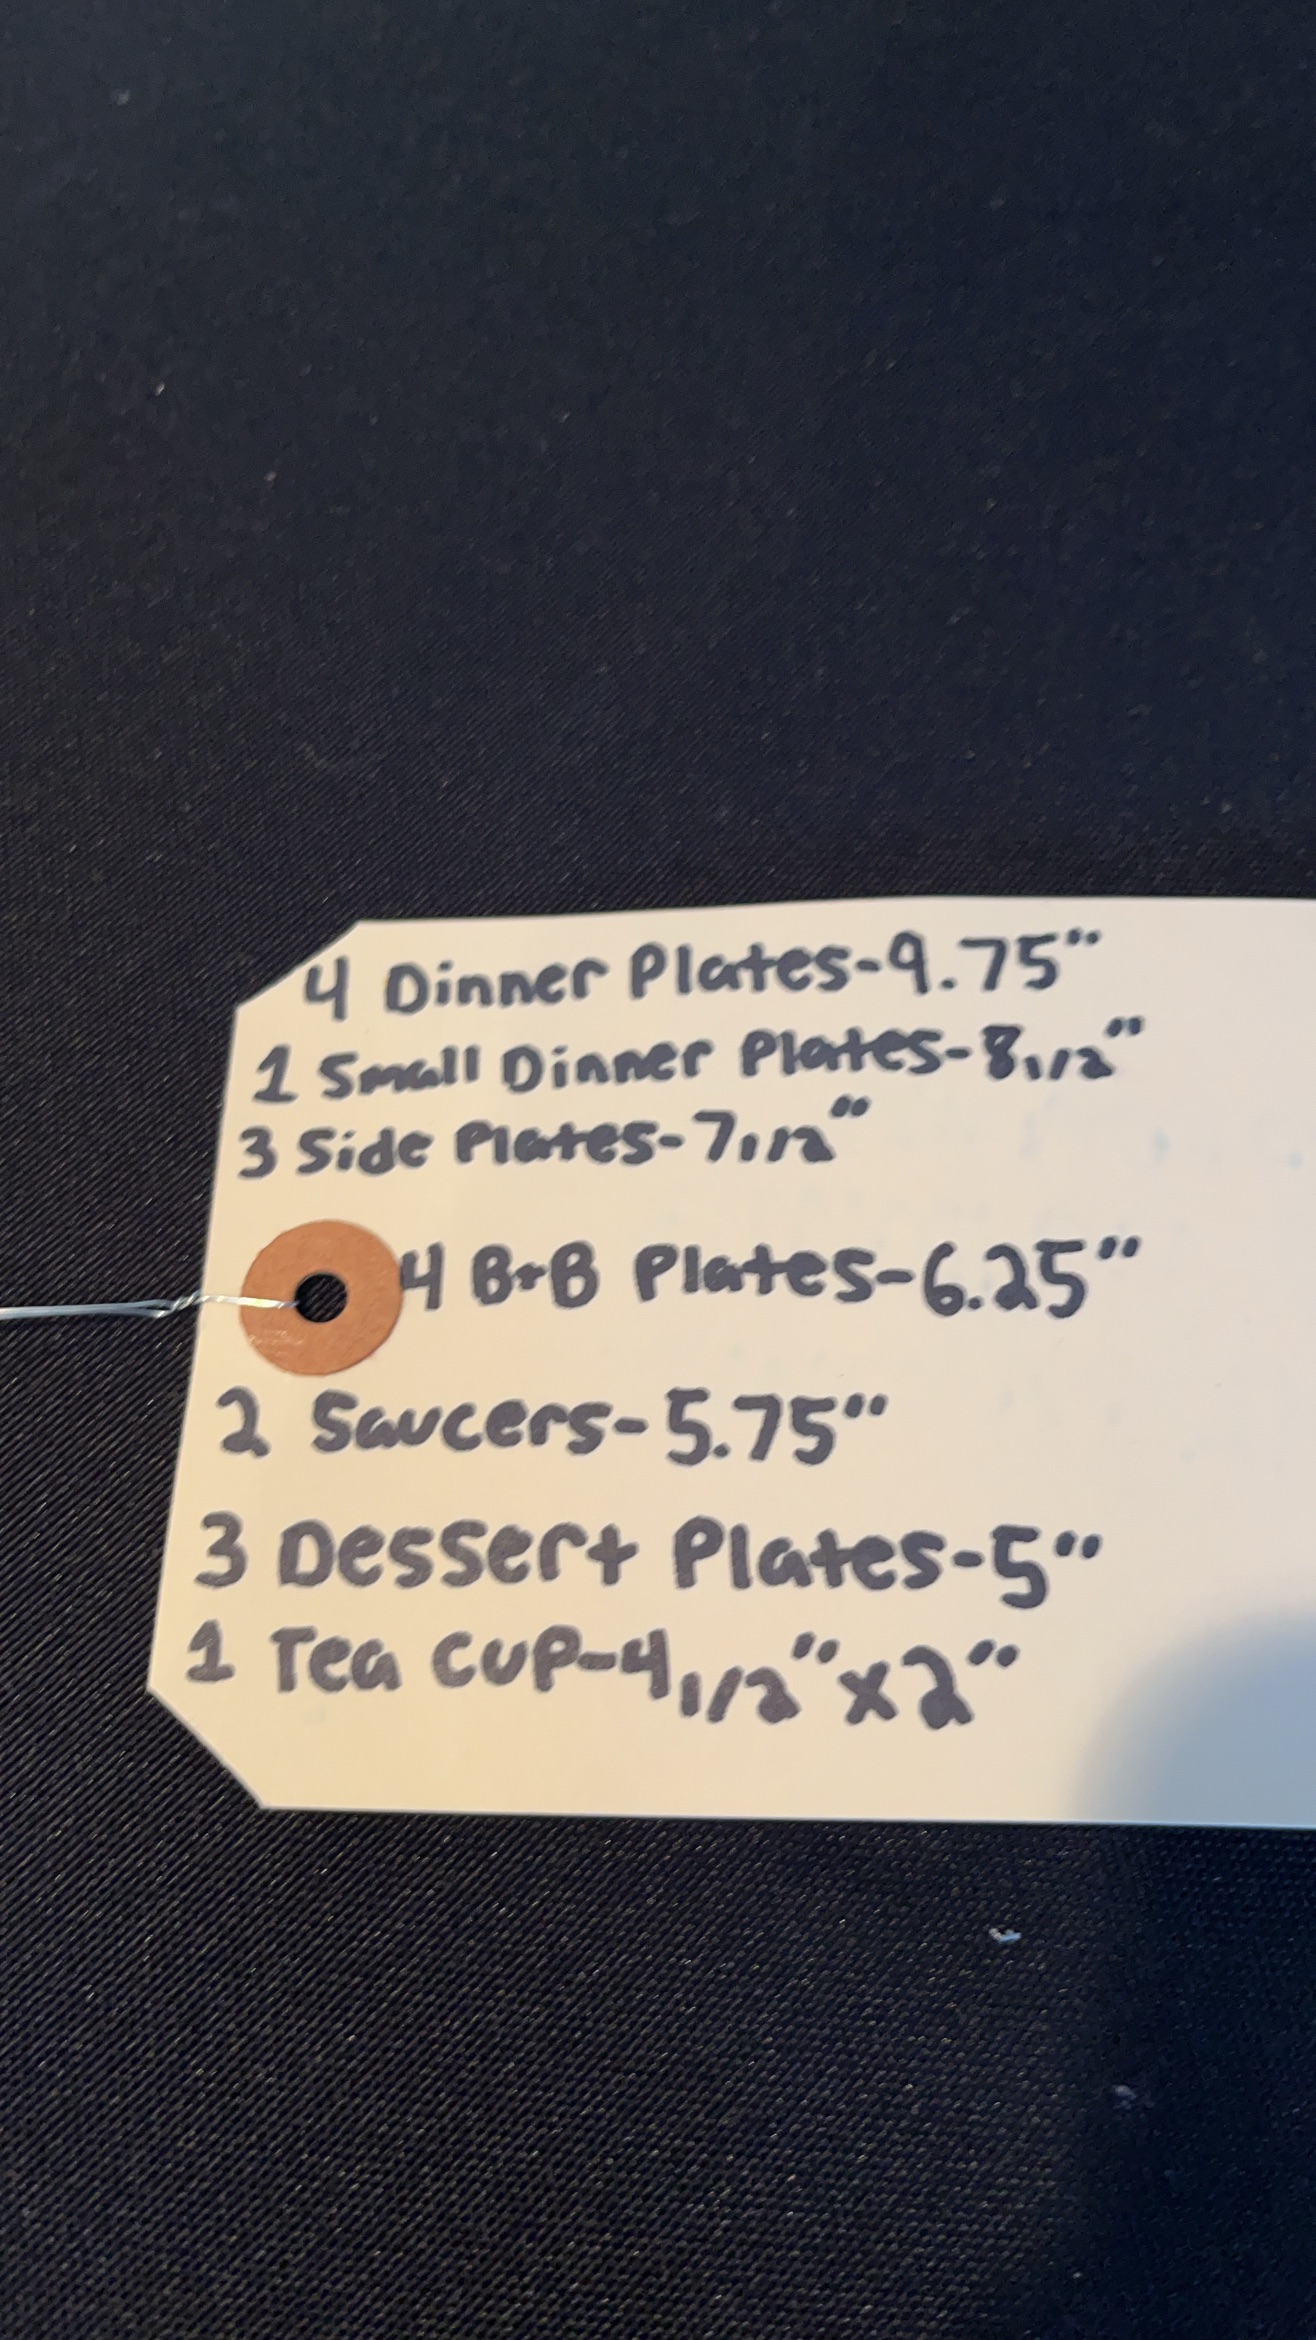 4 Dinner Plates-9.75"
1 Small Dinner Plates-8 1/2"
3 Side Plates-7 1/2"
4 B+B Plates-6.25"
2 Saucers-5.75"
3 Dessert Plates-5"
1 Tea Cup-4 1/2"x2"